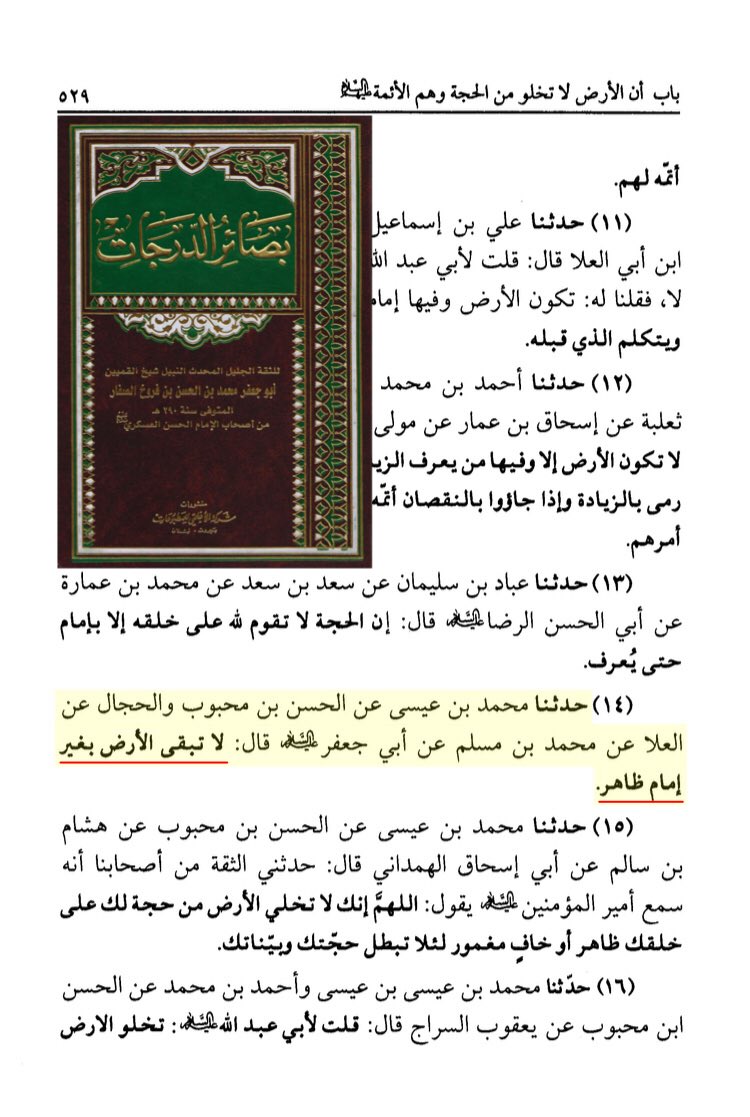 باب أن الأرض لا تخلو من الحجة وهم الأئمة عليهم السلام ٥٢٩
أئمّه لهم.
(١١) حدثنا علي بن إسماعيل
ابن أبي العلا قال: قلت لأبي عبد الله
لا، فقلنا له: تكون الأرض وفيها إماما
ويتكلم الذي قبله.
(١٢) حدثنا أحمد بن محمد
ثعلبة عن إسحاق بن عمار عن مولى
لا تكون الأرض إلا وفيها من يعرف الزيا
رمى بالزيادة وإذا جاؤوا بالنقصان أتمّه
أمرهم.
بصائر الدرجات
للثقة الجليل المحدث النبيل شيخ القميين
أبو جعفر محمد بن الحسن بن فروخ الصفار
المتوفى سنة ٢٩٠ هـ
من أصحاب الإمام الحسن العسكري
منشورات
شركة الأعلمي للمطبوعات
بيروت - لبنان
(١٣) حدثنا عباد بن سليمان عن سعد بن سعد عن محمد بن عمارة
عن أبي الحسن الرضا عليه السلام قال: إن الحجة لا تقوم لله على خلقه إلا بإمام
حتى يُعرف.
(١٤) حدثنا محمد بن عيسى عن الحسن بن محبوب والحجال عن
العلا عن محمد بن مسلم عن أبي جعفر عليه السلام قال: لا تبقى الأرض بغير
إمام ظاهر.
(١٥) حدثنا محمد بن عيسى عن الحسن بن محبوب عن هشام
بن سالم عن أبي إسحاق الهمداني قال: حدثني الثقة من أصحابنا أنه
سمع أمير المؤمنين عليه السلام يقول: اللهمَّ إنك لا تخلي الأرض من حجة لك على
خلقك ظاهر أو خافٍ مغمور لئلا تبطل حجّتك وبيّناتك.
(١٦) حدّثنا محمد بن عيسى بن عيسى وأحمد بن محمد عن الحسن
ابن محبوب عن يعقوب السراج قال: قلت لأبي عبد الله عليه السلام: تخلو الارض